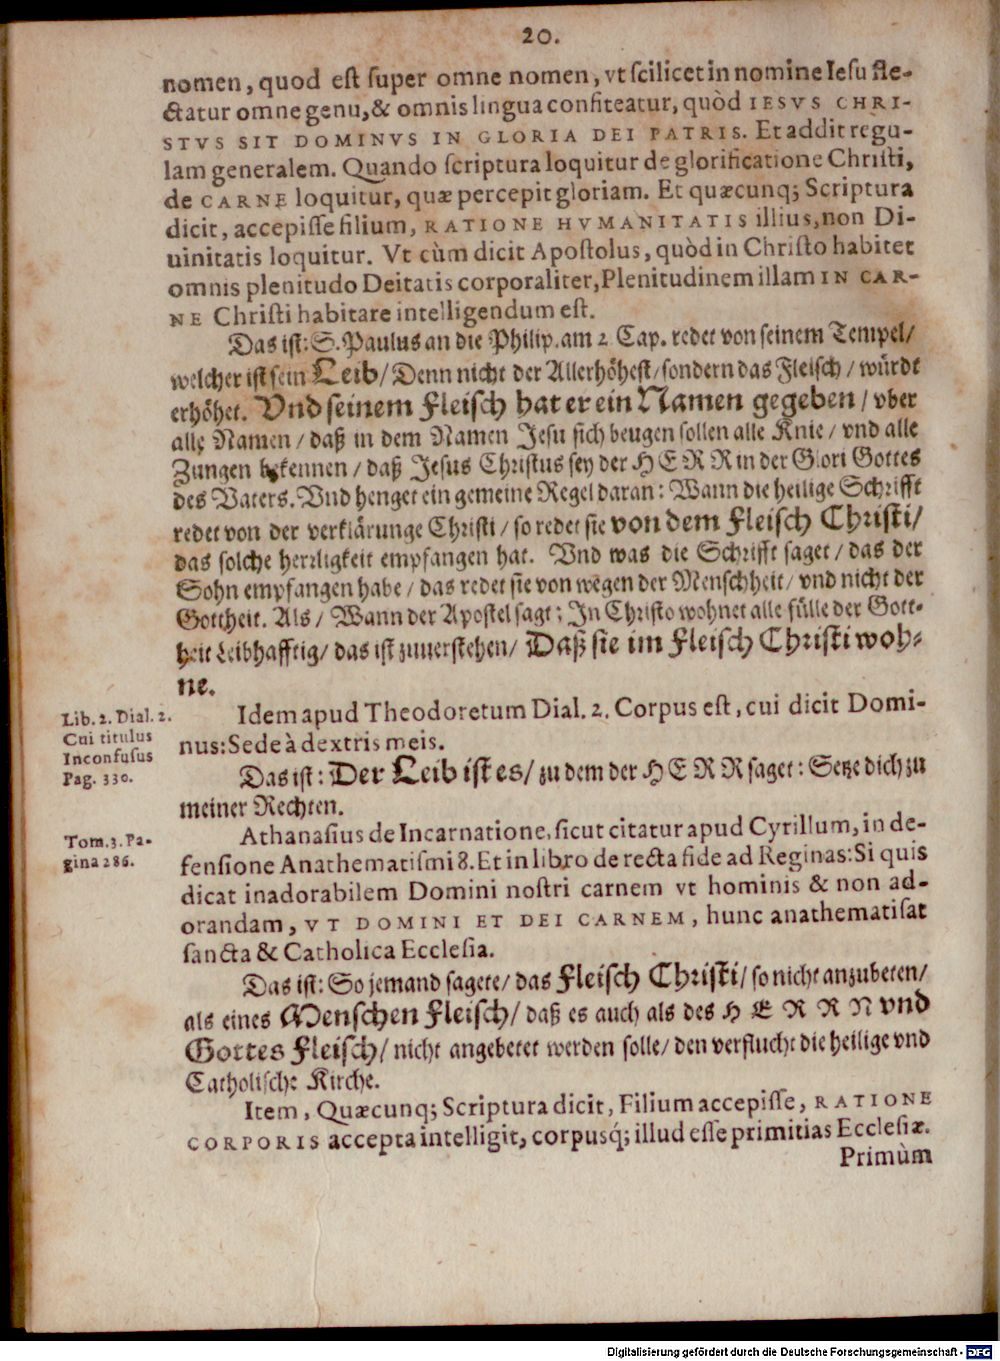 20.
nomen, quod est super omne nomen, vt scilicet in nomine Iesu fle-
ctatur omne genu, & omnis lingua confiteatur, quòd IESVS CHRI-
STVS SIT DOMINVS IN GLORIA DEI PATRIS. Et addit regu-
lam generalem. Quando scriptura loquitur de glorificatione Christi,
de CARNE loquitur, quæ percepit gloriam. Et quæcunq; Scriptura
dicit, accepisse filium, RATIONE HVMANITATIS illius, non Di-
uinitatis loquitur. Vt cùm dicit Apostolus, quòd in Christo habitet
omnis plenitudo Deitatis corporaliter, Plenitudinem illam IN CAR-
NE Christi habitare intelligendum est.
Das ist: S. Paulus an die Philip. am 2 Cap. redet von seinem Tempel/
welcher ist sein Leib/ Denn nicht der Allerhöhest/ sondern das Fleisch/ würdt
erhöhet. Vnd seinem Fleisch hat er ein Namen gegeben/ vber
alle Namen/ daß in dem Namen Jesu sich beugen sollen alle Knie/ vnd alle
Zungen bekennen/ daß Jesus Christus sey der HERR in der Glori Gottes
des Vaters. Vnd henget ein gemeine Regel daran: Wann die heilige Schrifft
redet von der verklärunge Christi/ so redet sie von dem Fleisch Christi/
das solche herrligkeit empfangen hat. Vnd was die Schrifft saget/ das der
Sohn empfangen habe/ das redet sie von wegen der Menschheit/ vnd nicht der
Gottheit. Als/ Wann der Apostel sagt: In Christo wohnet alle fülle der Gott-
heit Leibhafftig/ das ist zuuerstehen/ Daß sie im Fleisch Christi woh-
ne.
Lib. 2. Dial. 2.
Cui titulus
Inconfusus
Pag. 330.
Idem apud Theodoretum Dial. 2. Corpus est, cui dicit Domi-
nus: Sede à dextris meis.
Das ist: Der Leib ist es/ zu dem der HERR saget: Setze dich zu
meiner Rechten.
Tom. 3. Pa-
gina 286.
Athanasius de Incarnatione, sicut citatur apud Cyrillum, in de-
fensione Anathematismi 8. Et in libro de recta fide ad Reginas: Si quis
dicat inadorabilem Domini nostri carnem vt hominis & non ad-
orandam, VT DOMINI ET DEI CARNEM, hunc anathematisat
sancta & Catholica Ecclesia.
Das ist: So jemand sagete/ das Fleisch Christi/ so nicht anzubeten/
als eines Menschen Fleisch/ daß es auch als des HERRN vnd
Gottes Fleisch/ nicht angebetet werden solle/ den verflucht die heilige vnd
Catholische Kirche.
Item, Quæcunq; Scriptura dicit, Filium accepisse, RATIONE
CORPORIS accepta intelligit, corpusq́; illud esse primitias Ecclesiæ.
Primùm
Digitalisierung gefördert durch die Deutsche Forschungsgemeinschaft - DFG